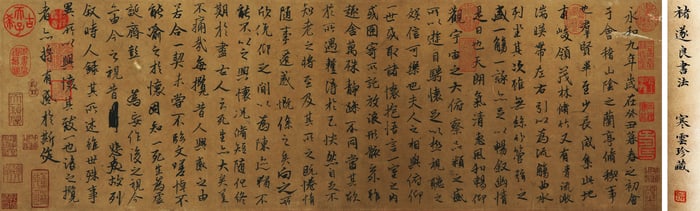 褚遂良書法 寒雲珍藏
永和九年歲在癸丑暮春之初會
于會稽山陰之蘭亭脩禊事
也群賢畢至少長咸集此地
有峻領茂林脩竹又有清流激
湍映帶左右引以為流觴曲水
列坐其次雖無絲竹管弦之
盛一觴一詠亦足以暢敘幽情
是日也天朗氣清惠風和暢仰
觀宇宙之大俯察品類之盛
所以遊目騁懷足以極視聽之
娛信可樂也夫人之相與俯仰
一世或取諸懷抱悟言一室之內
或因寄所託放浪形骸之外雖
趣舍萬殊靜躁不同當其欣
於所遇暫得於己怏然自足不
知老之將至及其所之既惓情
隨事遷感慨係之矣向之所
欣俛仰之間以為陳迹猶不
能不以之興懷況脩短隨化終
期於盡古人云死生亦大矣豈
不痛哉每攬昔人興感之由
若合一契未嘗不臨文嗟悼不
能喻之於懷固知一死生為虛
誕齊彭殤為妄作後之視今
亦由今之視昔悲夫故列
敘時人錄其所述雖世殊事
異所以興懷其致一也後之攬
者亦將有感於斯文